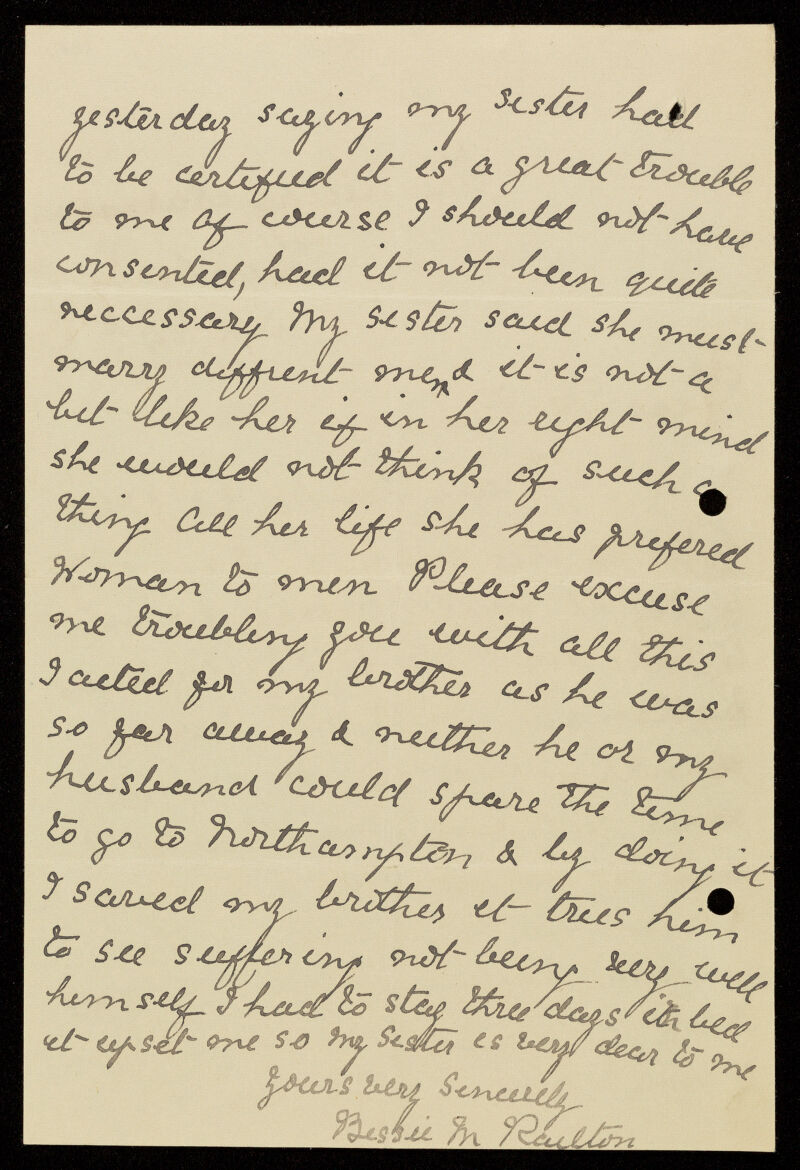 yesterday saying my sister had
to be certified it is a great trouble
to me of course I should not have
consented, had it not been quite
neccessary My sister said she must
marry diffrent men & it is not a
bit like her if in her right mind
she would not think of such a
thing All her life she has prefered
Woman to men Please excuse
me troubling you with all this
I acted for my brother as he was
so far away & neither he or my
husband could spare the time
to go to Northampton & by doing it
I saved my brother it tries him
to see suffering not being very well
himself I had to stay three days in bed
it upset me so My Sister is very dear to me
yours very Sincerely
Bessie M Railton